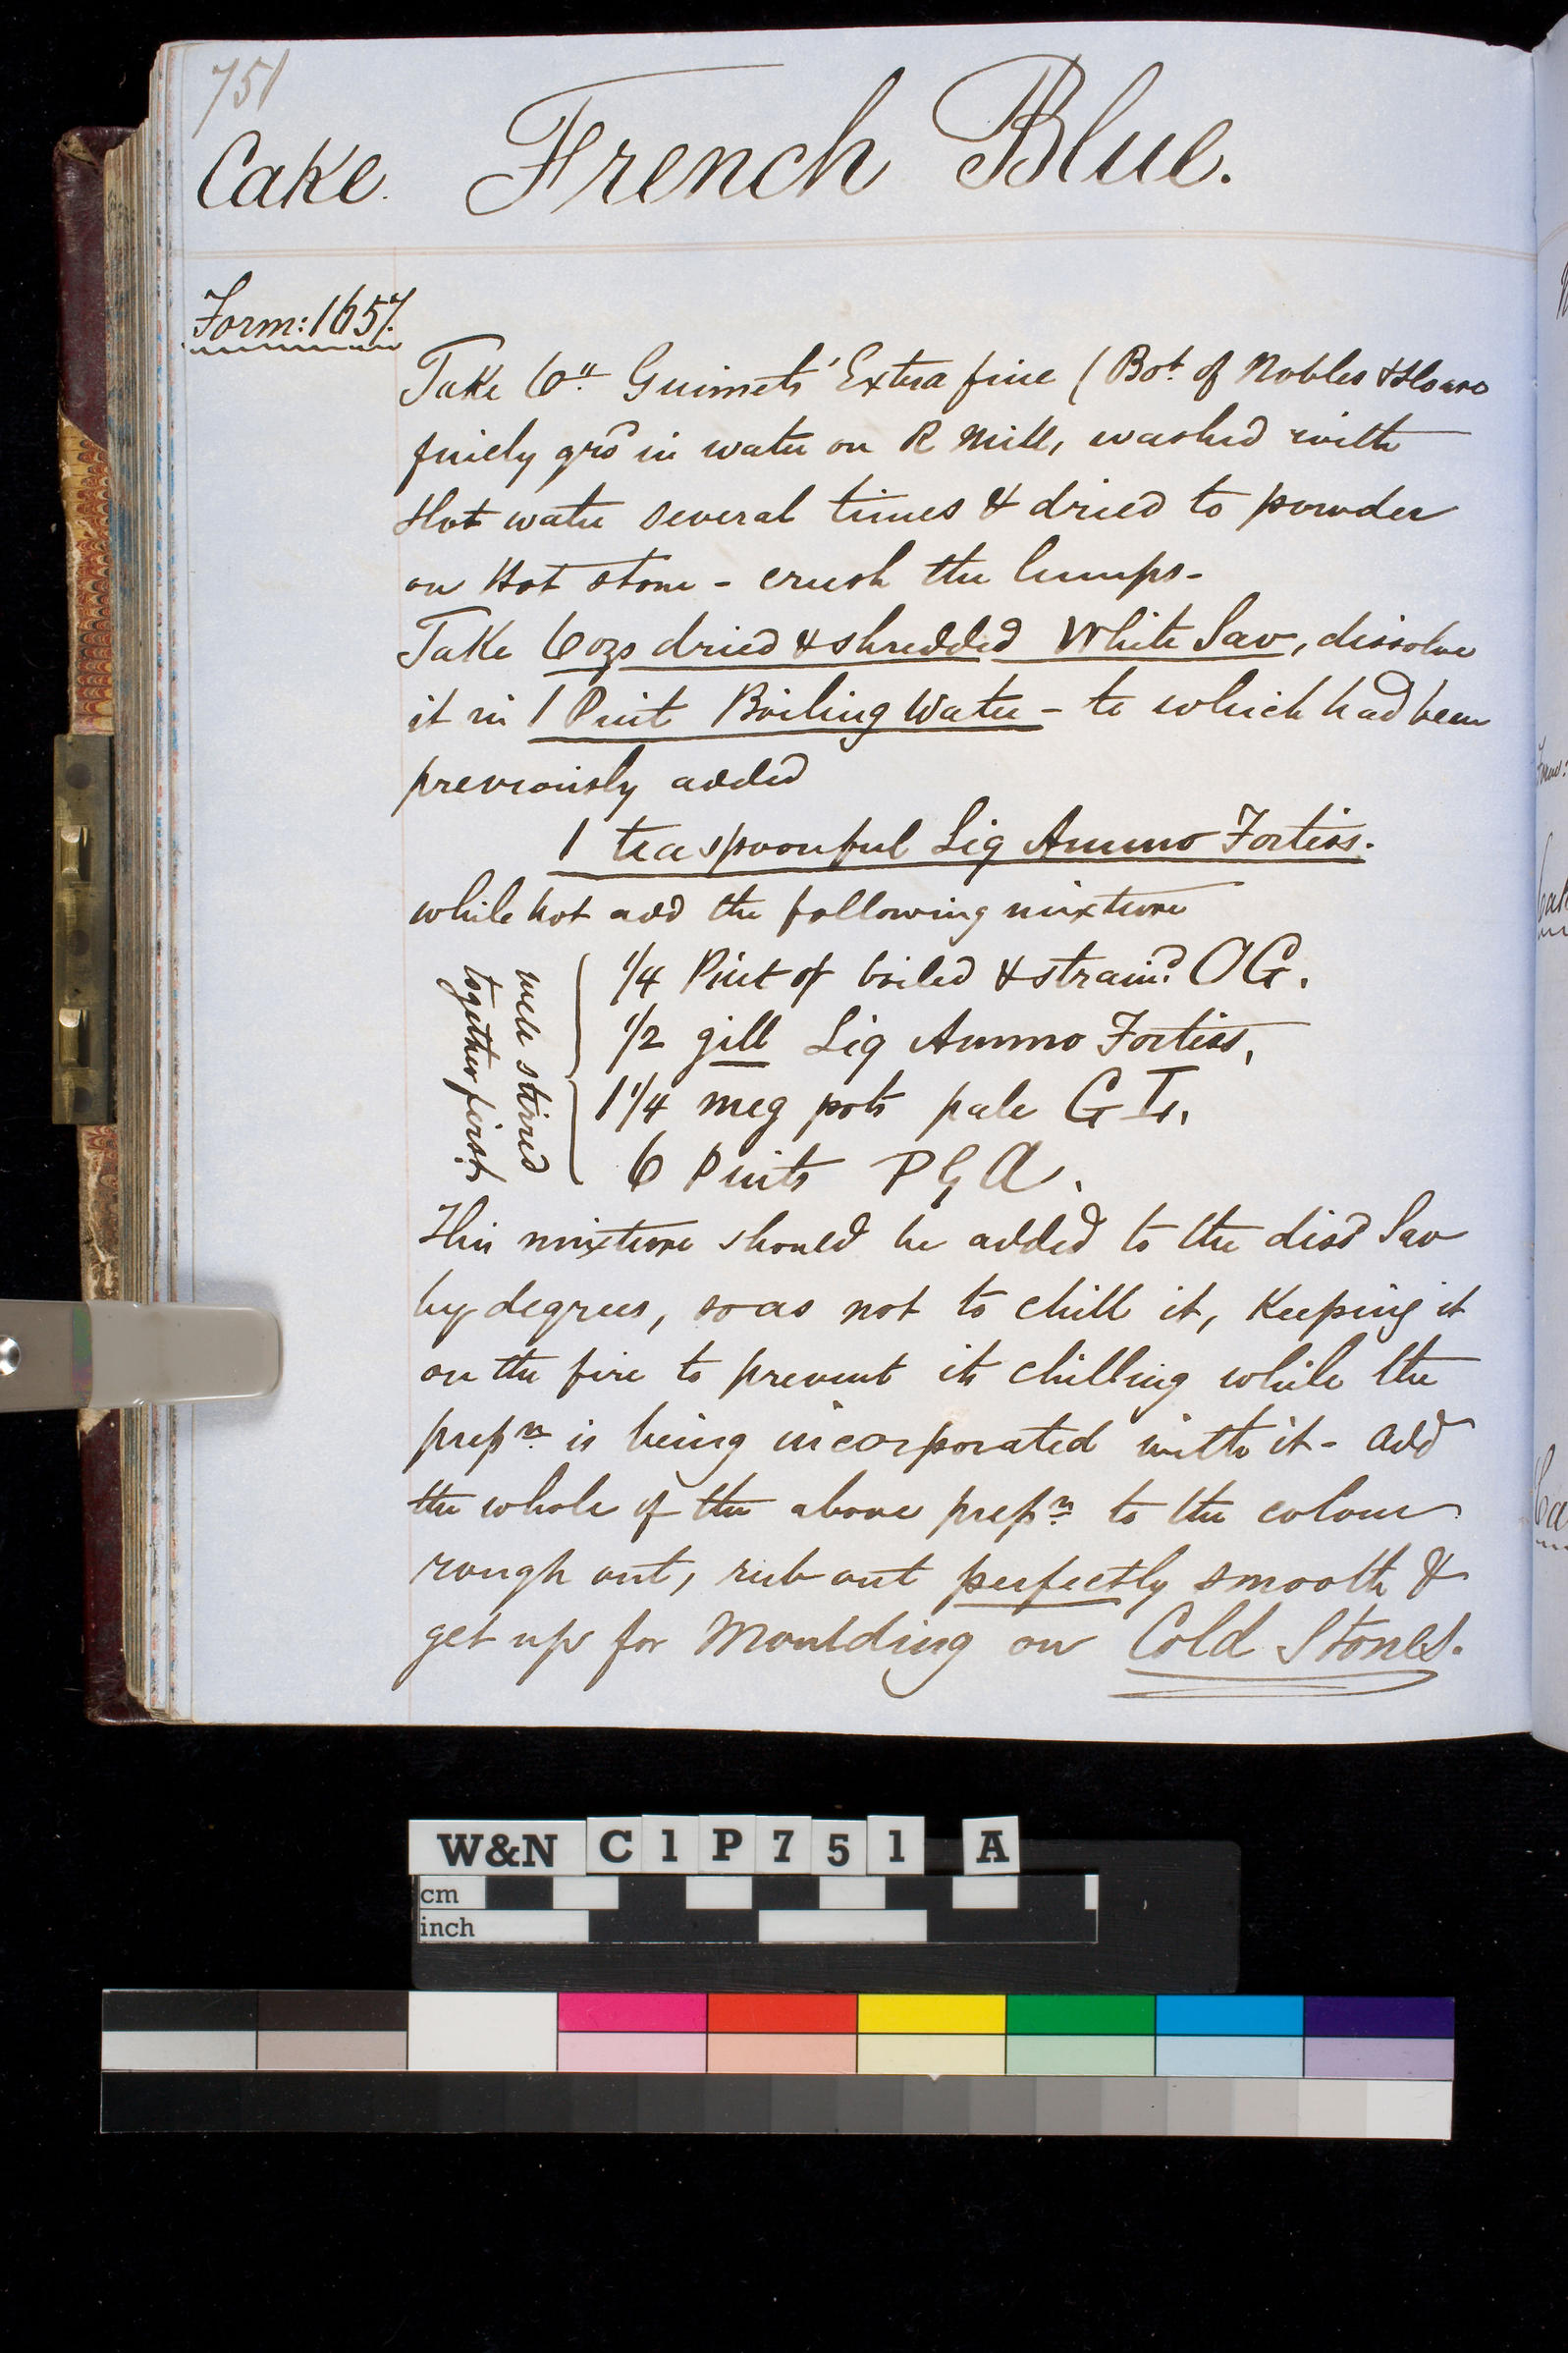 751
Cake. French Blue.
Form: 1657.
Take 6" Guimets' Extra fine (Bot. of Nobles & Hoare
finely grd in water on R Mill, washed with
Hot water several times & dried to powder
on Hot stone - crush the lumps -
Take 6 ozs dried & shredded White Sav, dissolve
it in 1 Pint Boiling Water - to which had been
previously added
1 teaspoonful Liq Ammo Fortiss.
while hot add the following mixture
well stirred
together first
1/4 Pint of boiled & straind. OG.
1/2 gill Liq Ammo Fortiss,
1 1/4 meg pots pale G I,
6 Pints P G A.
This mixture should be added to the disd Sav
by degrees, so as not to chill it, Keeping it
on the fire to prevent its chilling while the
prepn. is being incorporated with it - add
the whole of the above prepn. to the colour
rough out, rub out perfectly smooth &
get up for Moulding on Cold Stones.
W&N C1P751 A
cm
inch